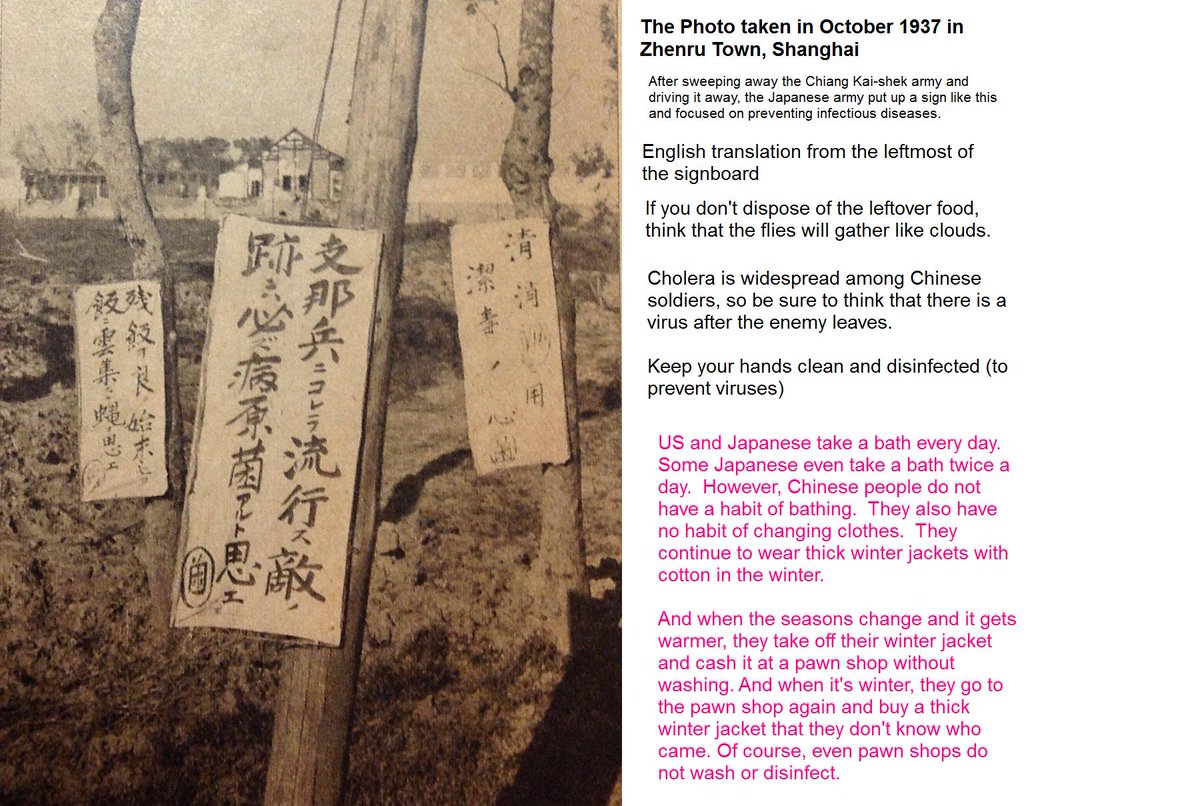 残飯 良 始末
飯 雲集 蝿 思エ
支那兵ニコレラ流行ス敵ノ
跡ニ必ズ病原菌アルト思エ
清消 用
潔毒ノ心
The Photo taken in October 1937 in
Zhenru Town, Shanghai
After sweeping away the Chiang Kai-shek army and
driving it away, the Japanese army put up a sign like this
and focused on preventing infectious diseases.
English translation from the leftmost of
the signboard
If you don't dispose of the leftover food,
think that the flies will gather like clouds.
Cholera is widespread among Chinese
soldiers, so be sure to think that there is a
virus after the enemy leaves.
Keep your hands clean and disinfected (to
prevent viruses)
US and Japanese take a bath every day.
Some Japanese even take a bath twice a
day. However, Chinese people do not
have a habit of bathing. They also have
no habit of changing clothes. They
continue to wear thick winter jackets with
cotton in the winter.
And when the seasons change and it gets
warmer, they take off their winter jacket
and cash it at a pawn shop without
washing. And when it's winter, they go to
the pawn shop again and buy a thick
winter jacket that they don't know who
came. Of course, even pawn shops do
not wash or disinfect.